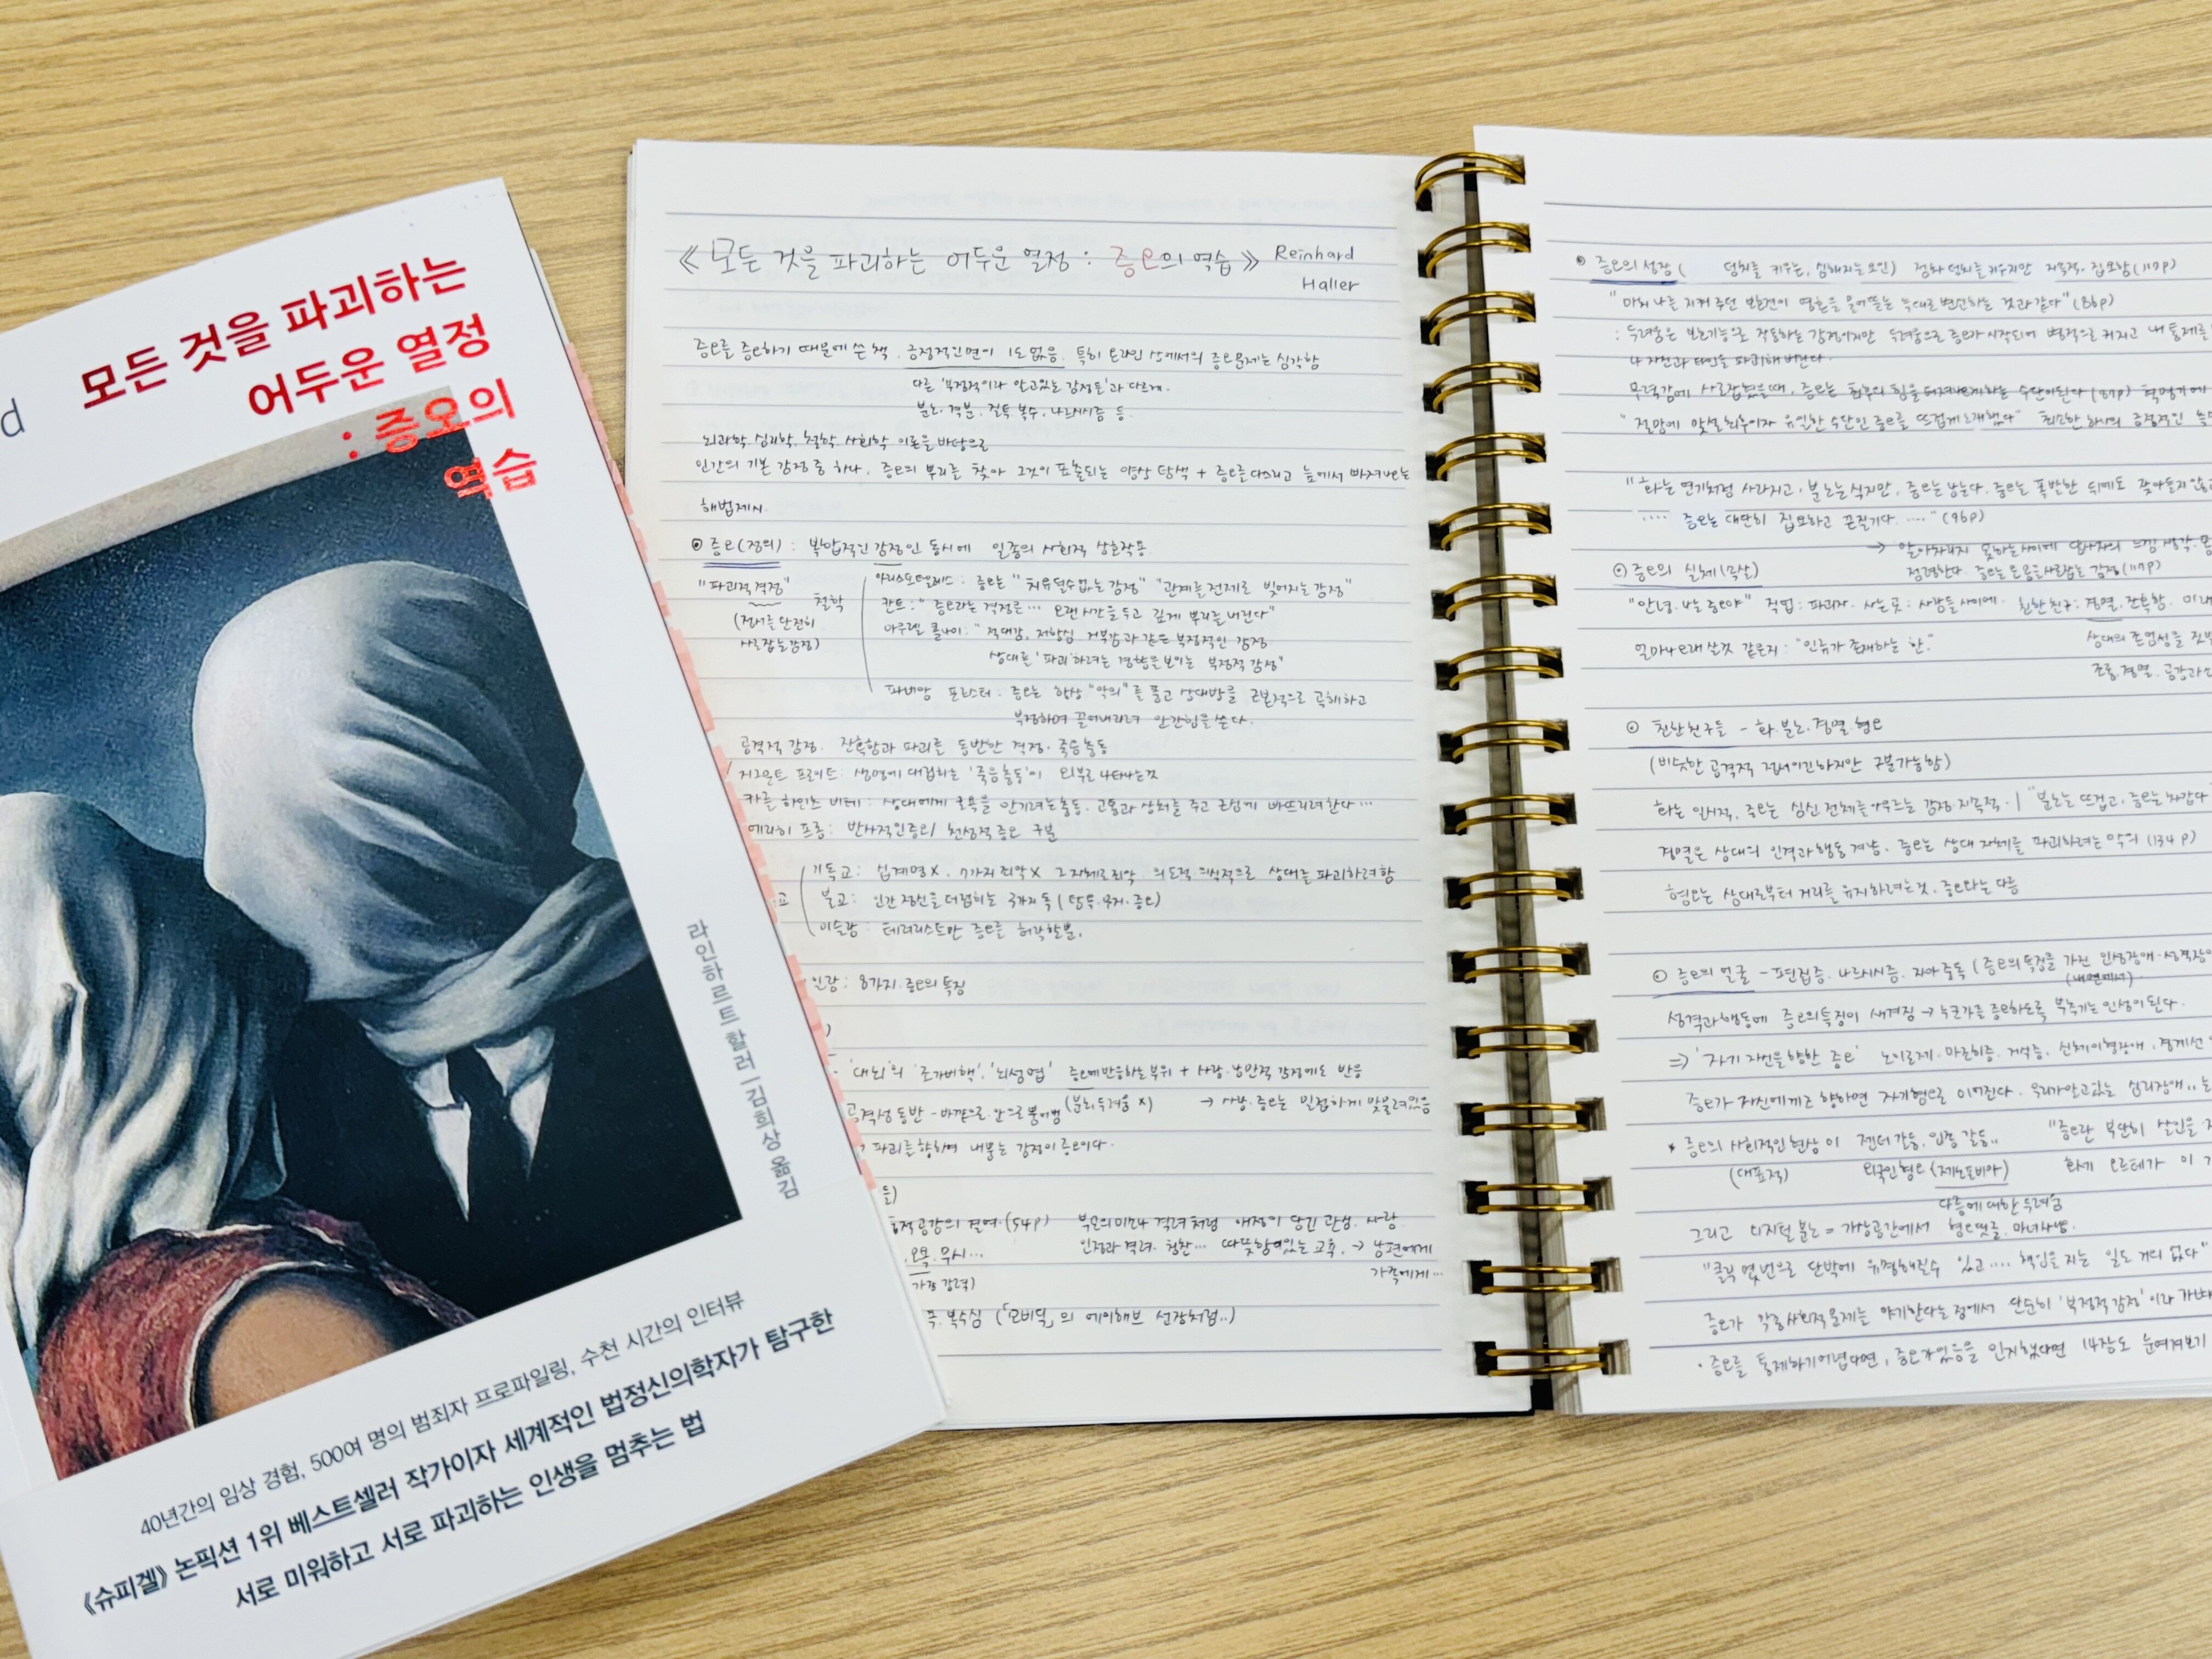 d
모든 것을 파괴하는
어두운 열정
: 증오의
역습
라인하르트 할러 / 김희상 옮김
40년간의 임상 경험, 500여 명의 범죄자 프로파일링, 수천 시간의 인터뷰
《슈피겔》 논픽션 1위 베스트셀러 작가이자 세계적인 법정신의학자가 탐구한
서로 미워하고 서로 파괴하는 인생을 멈추는 법
《모든 것을 파괴하는 어두운 열정 : 증오의 역습》 Reinhard
Haller
증오를 증오하기 때문에 쓴 책. 긍정적인면이 1도 없음. 특히 온라인 상에서의 증오문제는 심각함
다른 '부정적이라 알고있는 감정들'과 다르게.
분노. 격분. 질투 복수. 나르시시즘 등.
뇌과학 심리학, 철학 사회학 이론을 바탕으로
인간의 기본 감정 중 하나. 증오의 뿌리를 찾아 그것이 표출되는 양상 탐색 + 증오를 다스리고 늪에서 빠져나오는
해법제시.
⊙ 증오(정의) : 복합적인 감정인 동시에 일종의 사회적 상호작용
"파괴적격정"
(정서를 단단히
사로잡는감정)
철학
아리스토텔레스 : 증오는 "치유될수없는 감정" "관계를 전제로 빚어지는 감정"
칸트 : "증오라는 격정은 … 오랜시간을 두고 깊게 뿌리를 내린다"
아우렐 콜나이 : "적대감, 저항심 거부감과 같은 부정적인 감정
상대를 '파괴'하려는 경향을 보이는 부정적 감정"
파비앙 : 증오는 항상 "악의"를 품고 상대방을 근본적으로 곡해하고
부정하며 끌어내리려 안간힘을 쓴다.
공격적 감정. 잔혹함과 파괴를 동반한 격정. 죽음충동
지그문트 프로이트 : 생명에 대립하는 '죽음충동'이 외부로 나타나는것
카를 하인츠 비테 : 상대에게 굴욕을 안기려는충동. 고통과 상처를 주고 곤경에 빠뜨리려한다 …
에리히 프롬 : 반사적인증오/ 천성적증오 구분
교
기독교 : 십계명 X. 7가지 죄악 X 그 자체로 죄악. 의도적 의식적으로 상대를 파괴하려함
불교 : 인간 정신을 더럽히는 3가지 독 (탐욕. 무지. 증오)
이슬람 : 테러리스트만 증오를 허락할뿐.
8가지 증오의 특징
'대뇌'의 '조가비핵', '뇌섬엽' 증오에반응하는부위 + 사랑. 낭만적 감정에도 반응
(분노두려움 X) → 사랑. 증오는 밀접하게 맞물려있음
공격성 동반 – 바깥으로. 안으로
파괴를 향하여 내뿜는 감정이 증오이다.
들)
적 공감의 결여. (54p) 부모의미소나 격려처럼 애정이 담긴 관심. 사랑
. 모욕. 무시… 인정과 격려. 칭찬… 따뜻함이있는 교류. → 남편에게
가족에게…
복수심 (「모비딕」의 에이해브 선장처럼..)
⊙ 증오의 성장 ( 덩치를 키우는, 심해지는요인) 점차 덩치를 키우지만 지속적. 집요함(117p)
"마치 나를 지켜 주던 보호견이 영혼을 물어뜯는 늑대로 변신하는 것과 같다" (86p)
: 두려움은 보호기능으로 작동하는 감정이지만 두려움으로 증오가 시작되어 병적으로 커지고 내 통제를
나 자신과 타인을 파괴해버린다.
무력감에 사로잡혔을때, 증오는 수단이된다 (87p)
"절망에 맞설 최후이자 유일한 수단인 증오를 뜨겁게 노래했다" 최소한 하나의 긍정적인
"화는 연기처럼 사라지고, 분노는 식지만, 증오는 남는다. 증오는 폭발한 뒤에도 잦아들지 않고
…. 증오는 대단히 집요하고 끈질기다. …." (96p)
→ 알아차리지 못하는사이에 당사자의 느낌 생각.
점령한다 증오는 온몸을사로잡는 감정(117p)
⊙ 증오의 실체
"안녕. 나는 증오야" 직업 : 파괴자. 사는 곳 : 사람들 사이에. 친한 친구 : 경멸, 잔혹함.
얼마나오래 살것 같은지 : "인류가 존재하는 한."
상대의 존엄성을
조롱. 경멸. 공감
⊙ 친한친구들 – 화. 분노. 경멸. 혐오
(비슷한 공격적 정서이긴하지만 구분가능함)
화는 일시적, 증오는 심신 전체를 아우르는 감정. 지속적. | "분노는 뜨겁고, 증오는 차갑다
경멸은 상대의 인격과 행동 겨냥, 증오는 상대 자체를 파괴하려는 악의 (134p)
혐오는 상대로부터 거리를 유지하려는것, 증오와는 다름
⊙ 증오의 얼굴 – 편집증. 나르시시즘. 자아 중독 (증오의 특징을 가진 인성장애. 성격장애
(내면에서)
성격과행동에 증오의특징이 새겨짐 → 누군가를 증오하도록 부추기는 인성이 된다.
⇒ '자기 자신을 향한 증오' 노이로제. 거식증. 신체이형장애. 경계선
증오가 자신에게로 향하면 자기혐오로 이어진다. 우리가알고있는 심리장애..
* 증오의 사회적인 현상이 젠더 갈등, 인종 갈등.. "증오란 부단히 살인을
(대표적) 외국인혐오 (제노포비아) 호세 오르테가 이
다름에 대한 두려움
그리고 디지털 분노 = 가상공간에서 혐오댓글. 마녀사냥.
"클릭 몇번으로 단박에 유명해질수 있고 …. 책임을 지는 일도 거의 없다"
증오가 각종사회적문제를 야기한다는 점에서 단순히 '부정적감정'이라
• 증오를 통제하기어렵다면, 증오가있음을 인지했다면 14장도 눈여겨보기